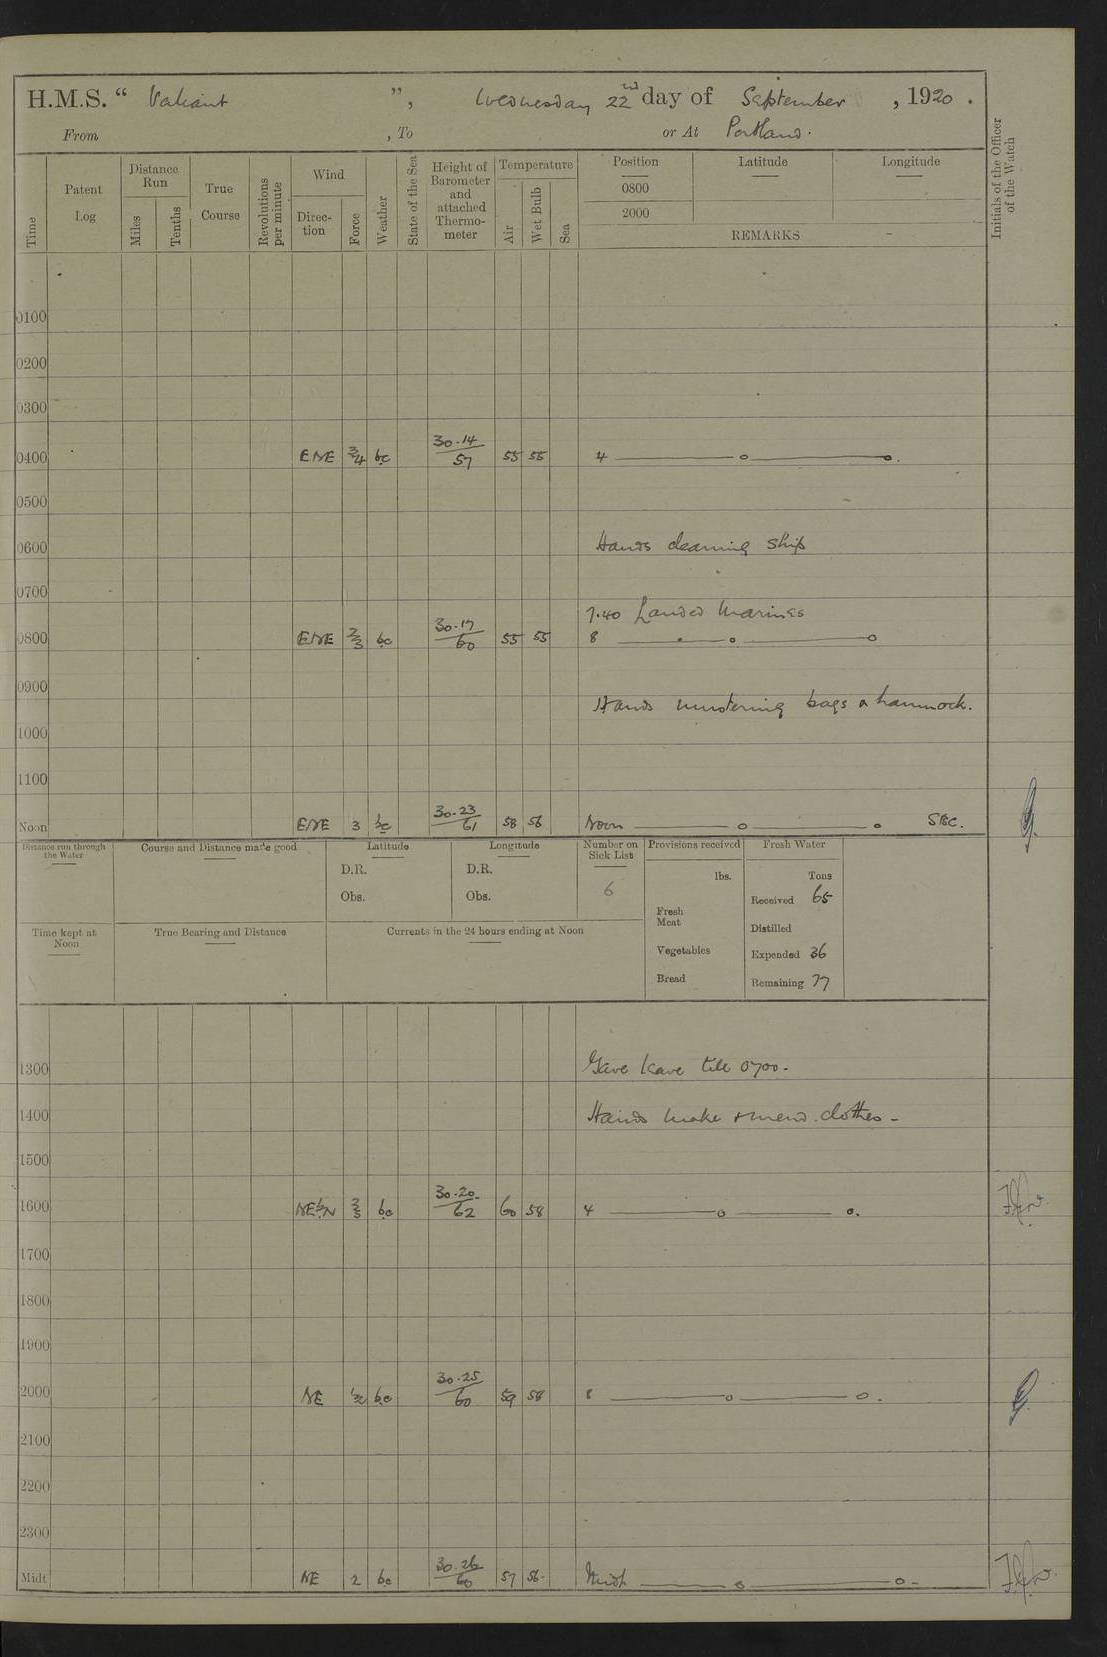 H.M.S. “ Valiant ”, Wednesday 22nd day of September , 1920 .
From , To or At Portland.
Time
Patent Log
Distance Run
Miles
Tenths
True Course
Revolutions per minute
Wind
Direc-tion
Force
Weather
State of the Sea
Height of Barometer and attached Thermo-meter
Temperature
Air
Wet Bulb
Sea
Position Latitude Longitude
0800
2000
REMARKS
Initials of the Officer of the Watch
0100
0200
0300
0400 ENE 3/4 bc 30.14/57 55 55 4 —o—o.
0500
0600 Hands cleaning ship
0700
7.40 Landed Marines
0800 ENE 2/3 bc 30.17/60 55 55 8 —o—o
0900
Hands mustering bags & hammock.
1000
1100
Noon ENE 3 bc 30.23/61 58 56 Noon —o—o
Distance run through the Water
Course and Distance made good
Latitude
D.R.
Obs.
Longitude
D.R.
Obs.
Number on Sick List
6
Provisions received
lbs.
Fresh Meat
Vegetables
Bread
Fresh Water
Tons
Received 65
Distilled
Expended 36
Remaining 77
Time kept at Noon
True Bearing and Distance
Currents in the 24 hours ending at Noon
1300 Gave leave till 0700.
1400 Hands make & mend clothes.
1500
1600 NEbN 2/3 bc 30.20/62 60 58 4 —o—o.
1700
1800
1900
2000 NE 1/2 bc 30.25/60 59 58 8 —o—o.
2100
2200
2300
Midt. NE 2 bc 30.26/60 57 56 Midt —o—o